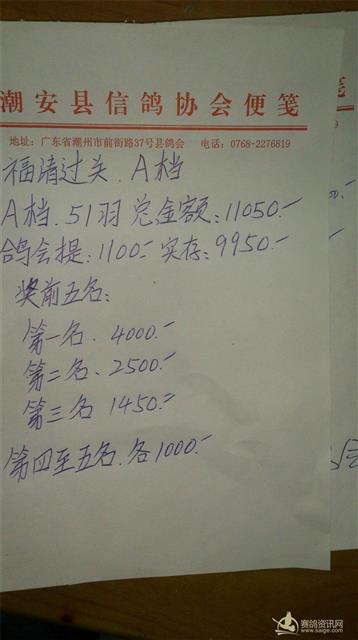 潮安县信鸽协会便笺
地址：广东省潮州市前街路37号县鸽会 电话：0768-2276819
福清过关．A档
A档．51羽 总金额：11050.-
鸽会提：1100.- 实存：9950.-
奖前五名：
第一名．4000.-
第二名、2500.-
第三名 1450.-
第四至五名．各1000.-
笺
赛鸽资讯网
www.saige.com